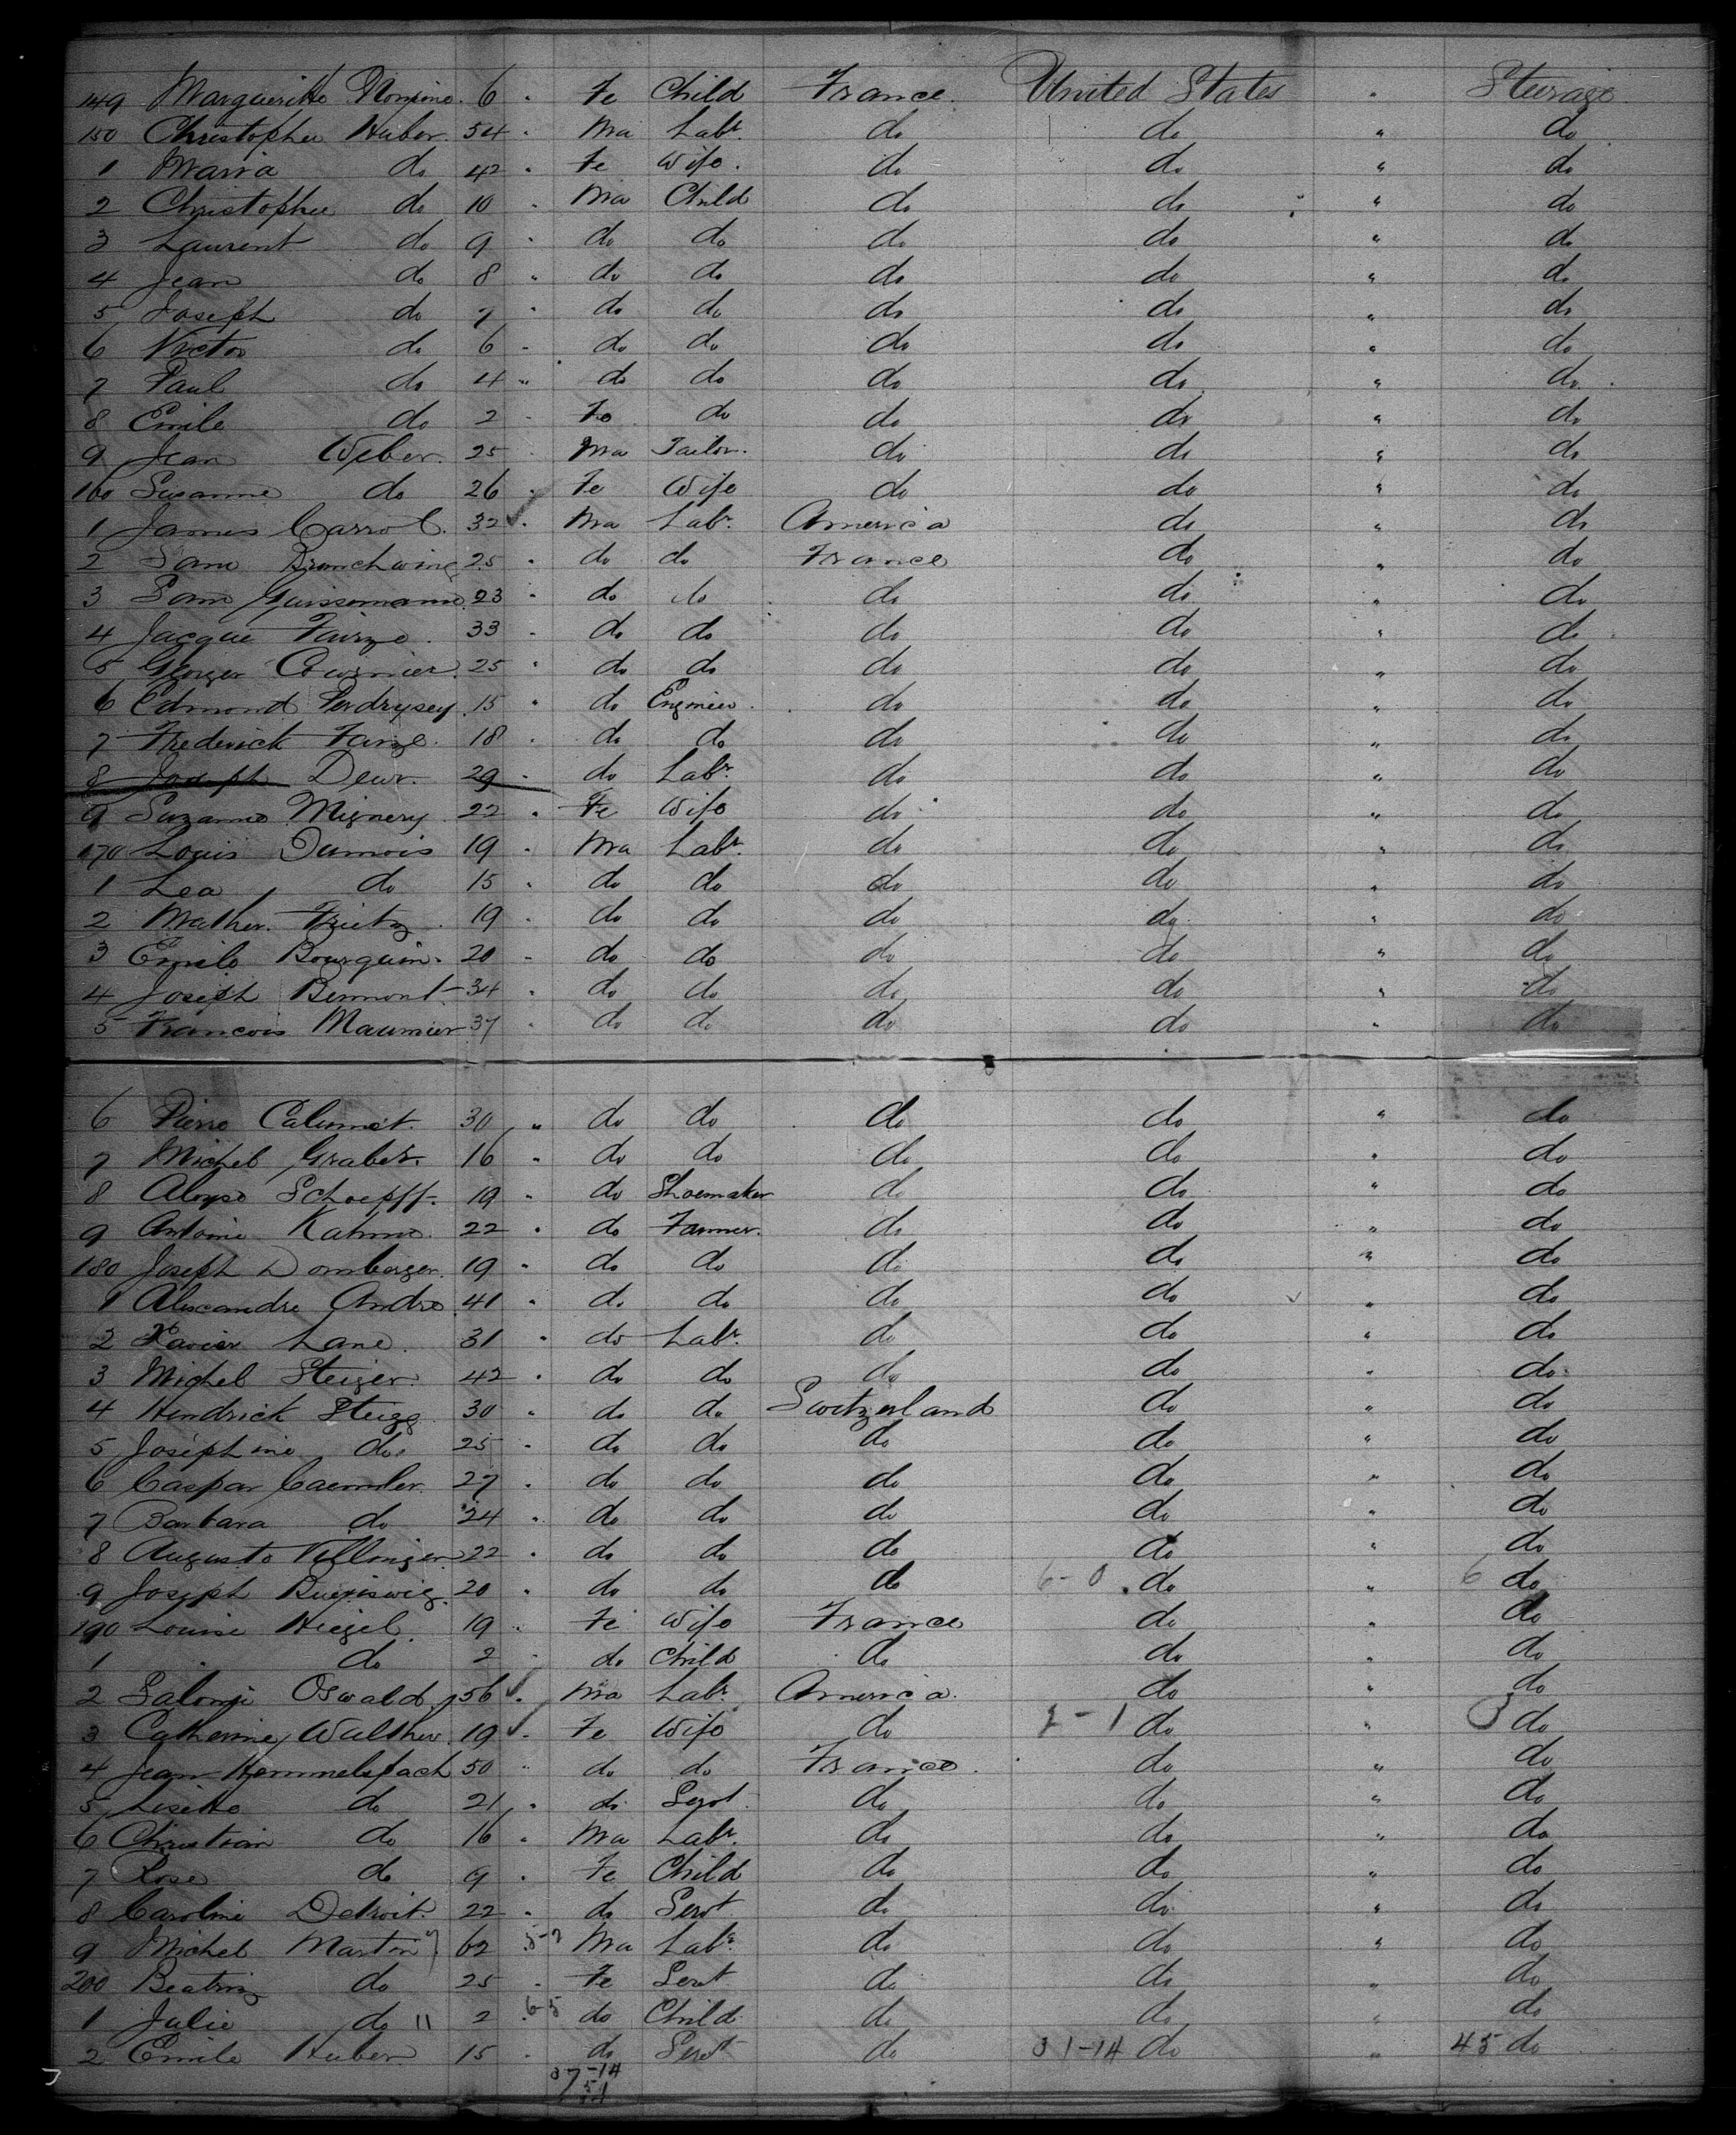 149 Margueritte 6 " Fe Child France. United States " Steerage
150 Christopher Huber. 54 " Ma Labr. do do " do
1 Maria do 42 " Fe Wife. do do " do
2 Christopher do 10 " Ma Child do do " do
3 Laurent do 9 " do do do do " do
4 Jean do 8 " do do do do " do
5 Joseph do 7 " do do do do " do
6 Victor do 6 " do do do do " do
7 Paul do 4 " do do do do " do
8 Emile do 2 " Fe do do do " do
9 Jean Weber. 25 " Ma Tailor. do do " do
160 Susanne do 26 " Fe Wife do do " do
1 James Carrol. 32 " Ma Labr. America do " do
2 Sam Brunchwing 25 " do do France do " do
3 Sam 23 " do do do do " do
4 Jacque 33 " do do do do " do
5 Georger 25 " do do do do " do
6 Edmond Perdrysey 15 " do Engineer. do do " do
7 Frederick 18 " do do do do " do
8 Joseph Deur. 29 " do Labr. do do " do
9 Suzanne Mignery 22 " Fe Wife do do " do
170 Louis Dumois 19 " Ma Labr. do do " do
1 Lea do 15 " do do do do " do
2 Mather. 19 " do do do do " do
3 Emile Bourquin. 20 " do do do do " do
4 Joseph Bermont 34 " do do do do " do
5 Francois Maumier 37 " do do do do " do
6 Pierre Calumet. 30 " do do do do " do
7 Michel Graber. 16 " do do do do " do
8 Aloyse Schoepff. 19 " do Shoemaker do do " do
9 Antoine 22 " do Farmer. do do " do
180 Joseph Domberger. 19 " do do do do " do
1 Alexandre Andre 41 " do do do do " do
2 Xavier Lane. 31 " do Labr. do do " do
3 Michel Steiger. 42 " do do do do " do
4 Hendrick Steigg 30 " do do Switzerland do " do
5 Josephine do. 25 " do do do do " do
6 Caspar Caemler. 27 " do do do do " do
7 Barbara do 24 " do do do do " do
8 Auguste Villinger 22 " do do do do " do
9 Joseph 20 " do do do 6-0 do " 6 do
190 Louise Hiegel. 19 " Fe Wife France do " do
1 " do 2 " do Child do do " do
2 Oswald 56 " Ma Labr. America. do " do
3 Catherine Walther. 19 " Fe Wife do 2-1 do " 3 do
4 Jean Hemmelspach 50 " do do France. do " do
5 Lisette do 21 " do Servt. do do " do
6 Christian do 16 " Ma Labr. do do " do
7 Rose do 9 " Fe Child do do " do
8 Caroline Detroit. 22 " do Servt do do " do
9 Michel Martin 62 5-7 Ma Labr. do do " do
200 Beatrix do 25 " Fe Servt do do " do
1 Julie do 11 2 6-5 do Child do do " do
2 Emile Huber. 15 " do Servt do 31-14 do " 45 do
37-14
51